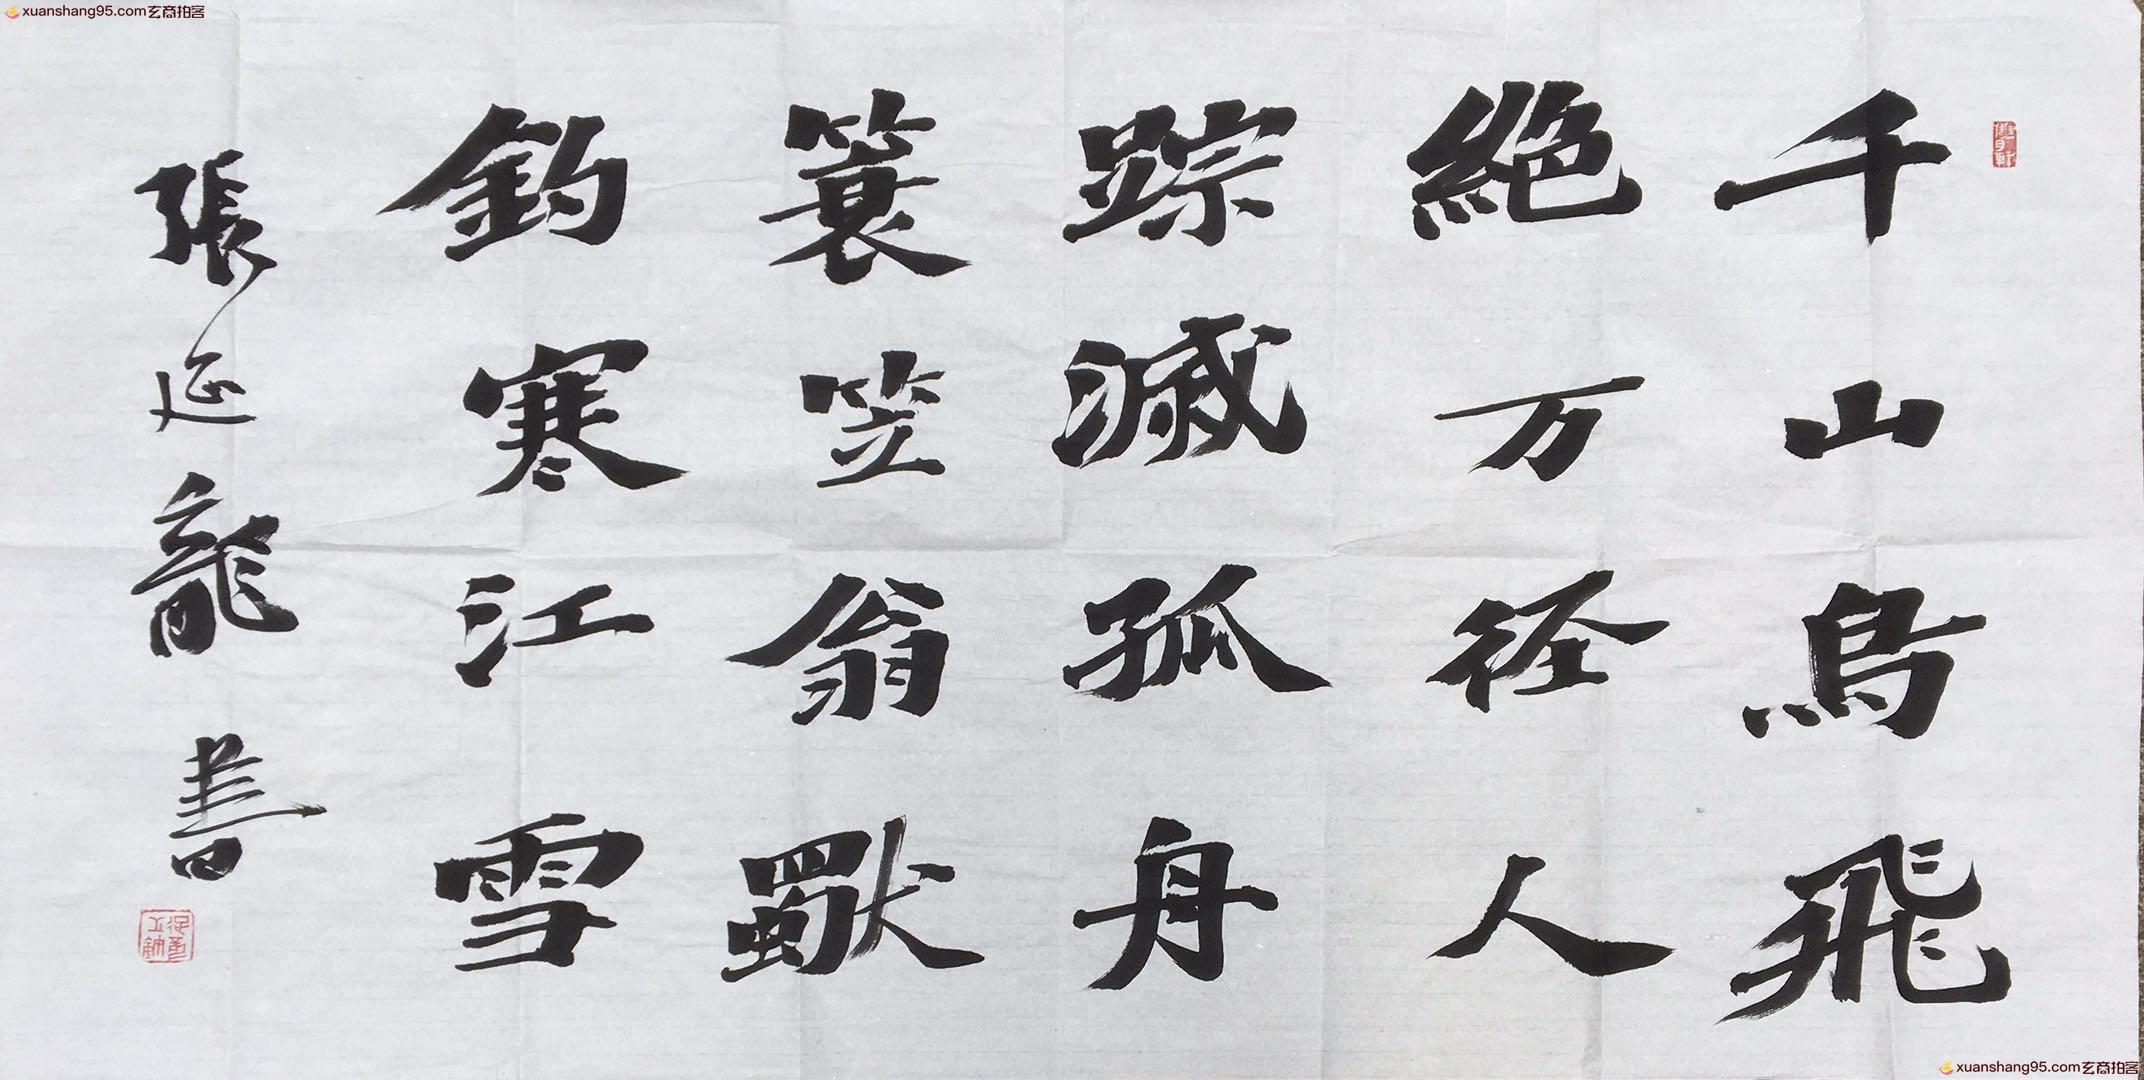 xuanshang95.com玄商拍客
千山鳥飛
絶万径人
踪滅孤舟
簑笠翁獨
釣寒江雪
張延龍書
xuanshang95.com玄商拍客